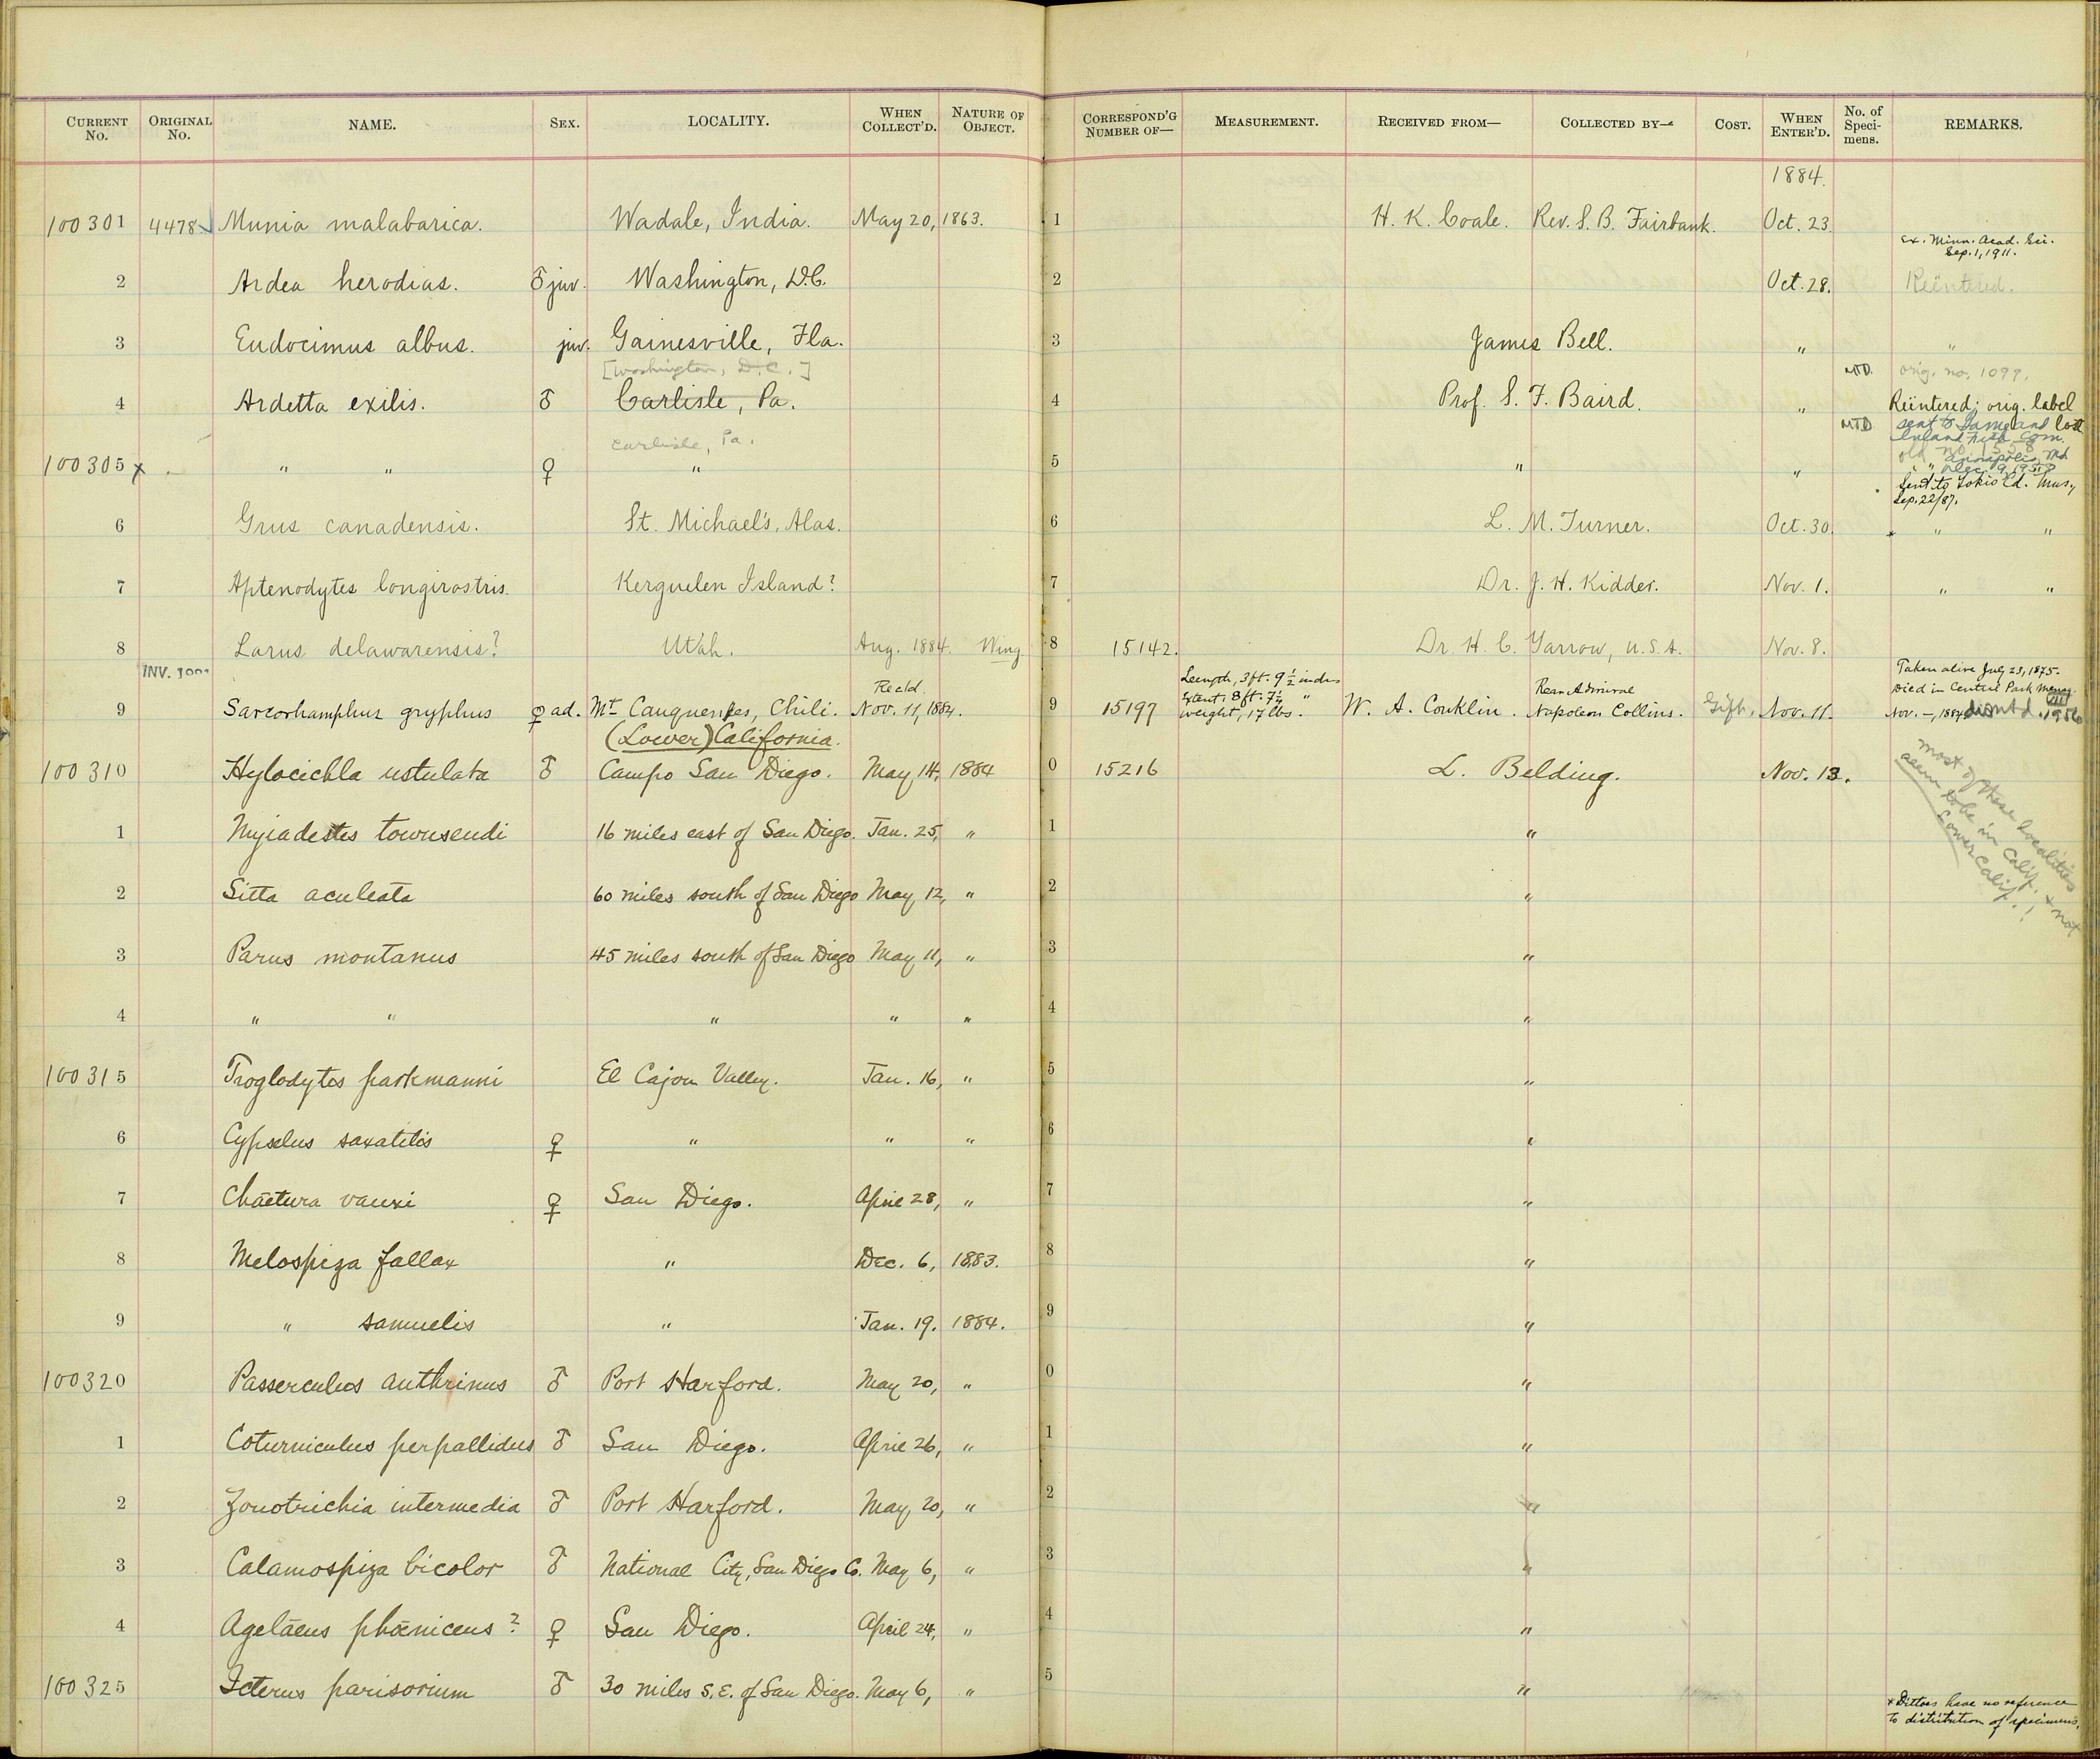 CURRENT No. ORIGINAL No. NAME. SEX. LOCALITY. WHEN COLLECT'D. NATURE OF OBJECT. CORRESPOND'G NUMBER OF— MEASUREMENT. RECEIVED FROM— COLLECTED BY— COST. WHEN ENTER'D. No. of Speci-mens. REMARKS.
1884.
100301 4478 Munia malabarica. Wadale, India. May 20, 1863. 1 H. K. Coale. Rev. S. B. Fairbank. Oct. 23.
Ex. Minn. Acad. Sci.
Sep. 1, 1911.
2 Ardea herodias. ♂ juv. Washington, D.C. 2 Oct. 28. Reëntered.
3 Eudocimus albus. juv. Gainesville, Fla. 3 James Bell. " "
[Washington, D.C.] MTD. orig. no. 1099.
4 Ardetta exilis. ♂ Carlisle, Pa. 4 Prof. S. F. Baird. " Reëntered; orig. label
Carlisle, Pa. MTD sent to and lost
Inland Fish. Com.
old Annapolis, Md
100305 x " " ♀ " 5 " " " Dec. 9, 1958
Sent to Tokio Ed. Mus.,
Sep. 22/87.
6 Grus canadensis. St. Michael's, Alas. 6 L. M. Turner. Oct. 30. * " "
7 Aptenodytes longirostris. Kerguelen Island? 7 Dr. J. H. Kidder. Nov. 1. " "
8 Larus delawarensis? Utah. Aug. 1884. Wing 8 15142. Dr. H. C. Yarrow, U.S.A. Nov. 8.
INV. Rec'd. Length, 3 ft. 9 ½ inches Rear Admiral Taken alive July 23, 1875.
Extent, 8 ft. 7 ½ " Died in Central Park Menag.
9 Sarcorhamphus gryphus ♀ ad. Mt. Cauquenes, Chili. Nov. 11, 1884. 9 15197 weight, 17 lbs. W. A. Conklin. Napoleon Collins. Gift, Nov. 11. Nov. —, 1884 dismtd. 1956
(Lower) California.
100310 Hylocichla ustulata ♂ Campo San Diego. May 14, 1884 0 15216 L. Belding. Nov. 13.
most of these localities
seem to be in Calif. & not
Lower Calif.!
1 Myiadestes townsendi 16 miles east of San Diego. Jan. 25, " 1 "
2 Sitta aculeata 60 miles south of San Diego May 12, " 2 "
3 Parus montanus 45 miles south of San Diego May 11, " 3 "
4 " " " " " 4 "
100315 Troglodytes parkmanni El Cajon Valley. Jan. 16, " 5 "
6 Cypselus saxatilis ♀ " " " 6 "
7 Chætura vauxi ♀ San Diego. April 28, " 7 "
8 Melospiza fallax " Dec. 6, 1883. 8 "
9 " samuelis " Jan. 19. 1884. 9 "
100320 Passerculus anthinus ♂ Port Harford. May 20, " 0 "
1 Coturniculus perpallidus ♂ San Diego. April 26, " 1 "
2 Zonotrichia intermedia ♂ Port Harford. May 20, " 2 "
3 Calamospiza bicolor ♂ National City, San Diego Co. May 6, " 3 "
4 Agelæus phœniceus? ♀ San Diego. April 24, " 4 "
100325 Icterus parisorum ♂ 30 miles S.E. of San Diego. May 6, " 5 "
* Dittoes have no reference
to distribution of specimens.